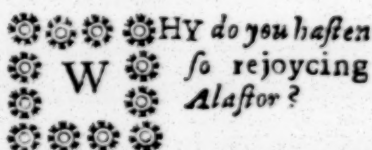 WHY do you haſten
ſo rejoycing
Alaſtor?